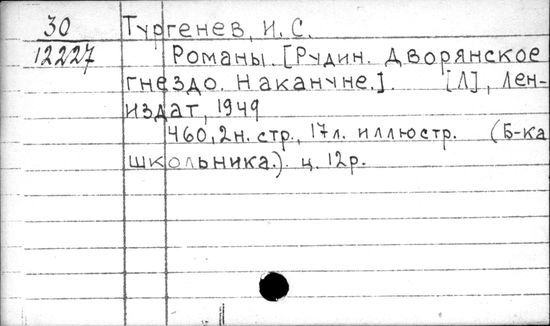 30
12227
Тургенев, И. С.
Романы. [Рудин. Дворянское
гнездо. Накануне.]. [Л], Лен-
издат, 1949
460, 2н. стр., 17л. иллюстр. (Б-ка
школьника.). ц. 12р.